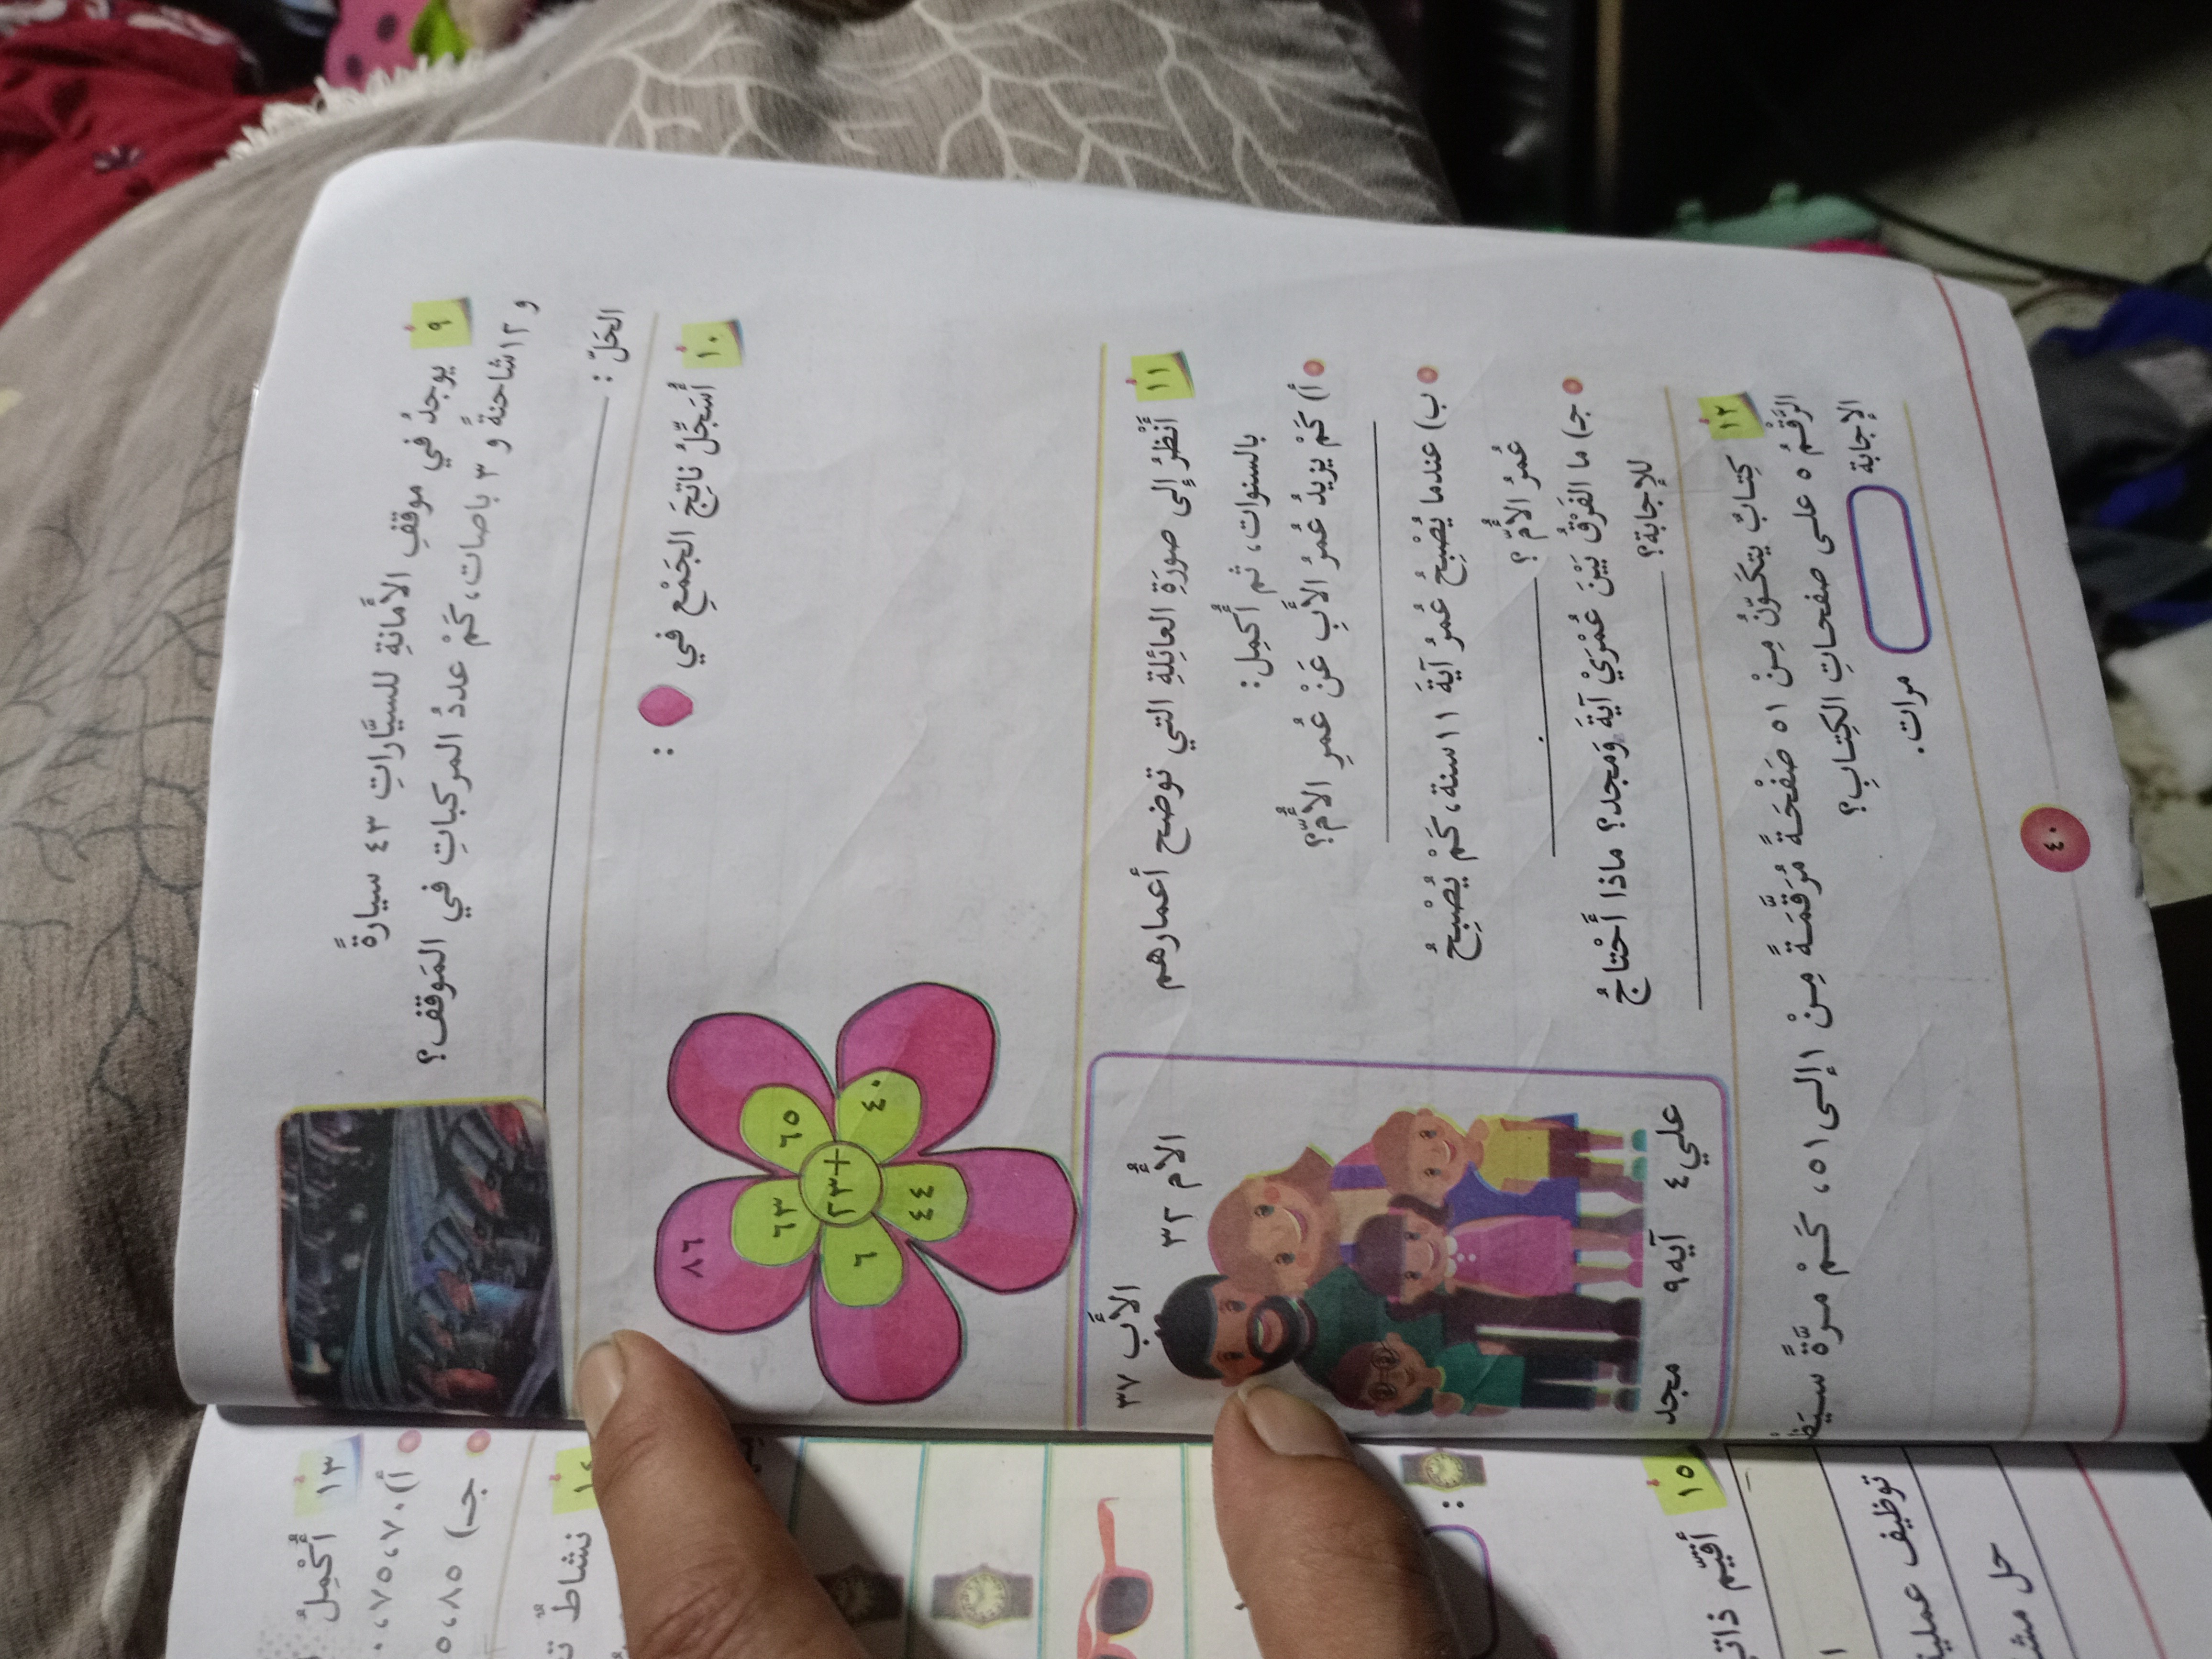 ٩ يوجدُ في موقفِ الأَمانةِ للسيَّاراتِ ٤٣ سيارةً
و ١٢ شاحنةً و ٣ باصات، كَمْ عددُ المركباتِ في المَوقف؟
الحَلّ:
١٠ أُسَجِّلُ ناتِجَ الجَمْعِ في :
٨٦
٦٣
٦٥
٤٠
٤٤
٦
+٢٣
١١ أَنْظُرُ إلى صورَةِ العائلةِ التي توضح أعمارهم
بالسنوات، ثم أُكمِل:
أ) كَمْ يزيدُ عُمرُ الأَبِ عَنْ عُمرِ الأُمّ؟
ب) عندما يُصْبِحُ عُمرُ آيةَ ١١ سنة، كَمْ يُصْبِحُ
عُمرُ الأُمّ؟
جـ) ما الفَرْقُ بَيْنَ عُمْرَيْ آيةَ وَمَجد؟ ماذا أَحْتاجُ
للإجابة؟
الأَب ٣٧
الأُم ٣٢
مجد
آيه ٩
علي ٤
١٢ كِتابٌ يتكَوّنُ مِنْ ٥١ صَفْحَةً مُرَقَّمَةً مِنْ ١ إلى ٥١، كَمْ مرَّةً
الرَّقْمُ ٥ على صفحاتِ الكِتابِ؟
الإجابة مرات.
٤٠
١٣ أُكْمِلُ
أ) ٧٠، ٧٥،
جـ) ٨٥،
نشاطٌ
:
١٥ أُقيّم ذاتي
توظيف
حل